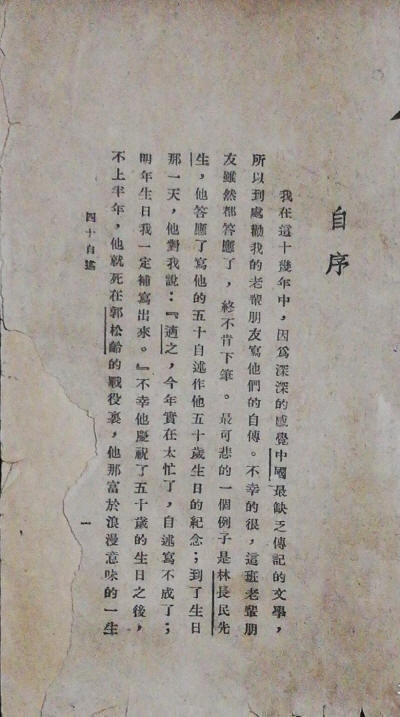 自序
我在這十幾年中，因爲深深的感覺中國最缺乏傳記的文學，
所以到處勸我的老輩朋友寫他們的自傳。不幸的很，這班老輩朋
友雖然都答應了，終不肯下筆。最可悲的一個例子是林長民先
生，他答應了寫他的五十自述作他五十歲生日的紀念；到了生日
那一天，他對我說：『適之，今年實在太忙了，自述寫不成了；
明年生日我一定補寫出來。』不幸他慶祝了五十歲的生日之後，
不上半年，他就死在郭松齡的戰役裏，他那富於浪漫意味的一生
四十自述
一